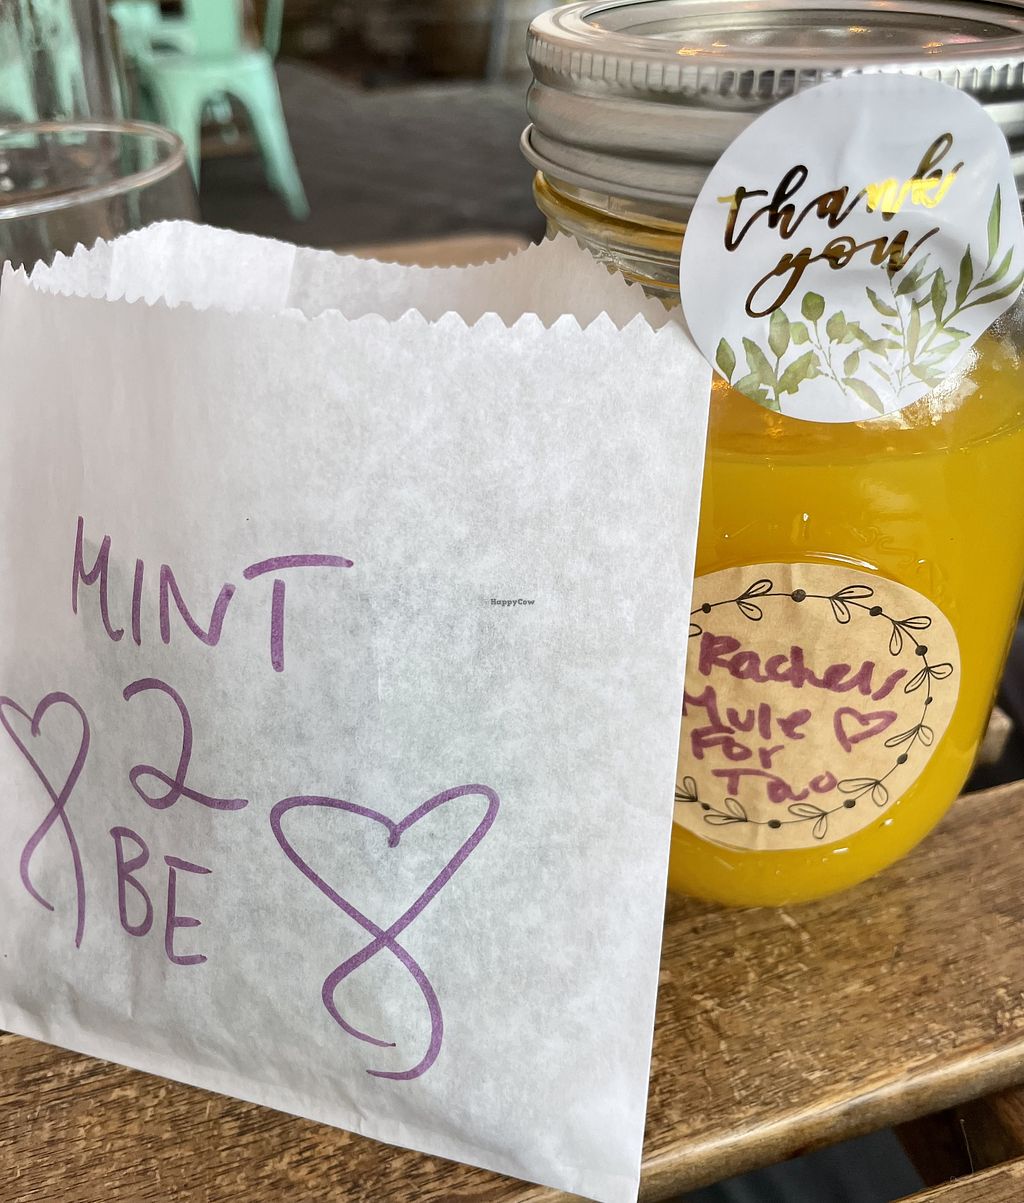 MINT
2
BE
thank
you
Rachels
Mule
For
Tao
HappyCow